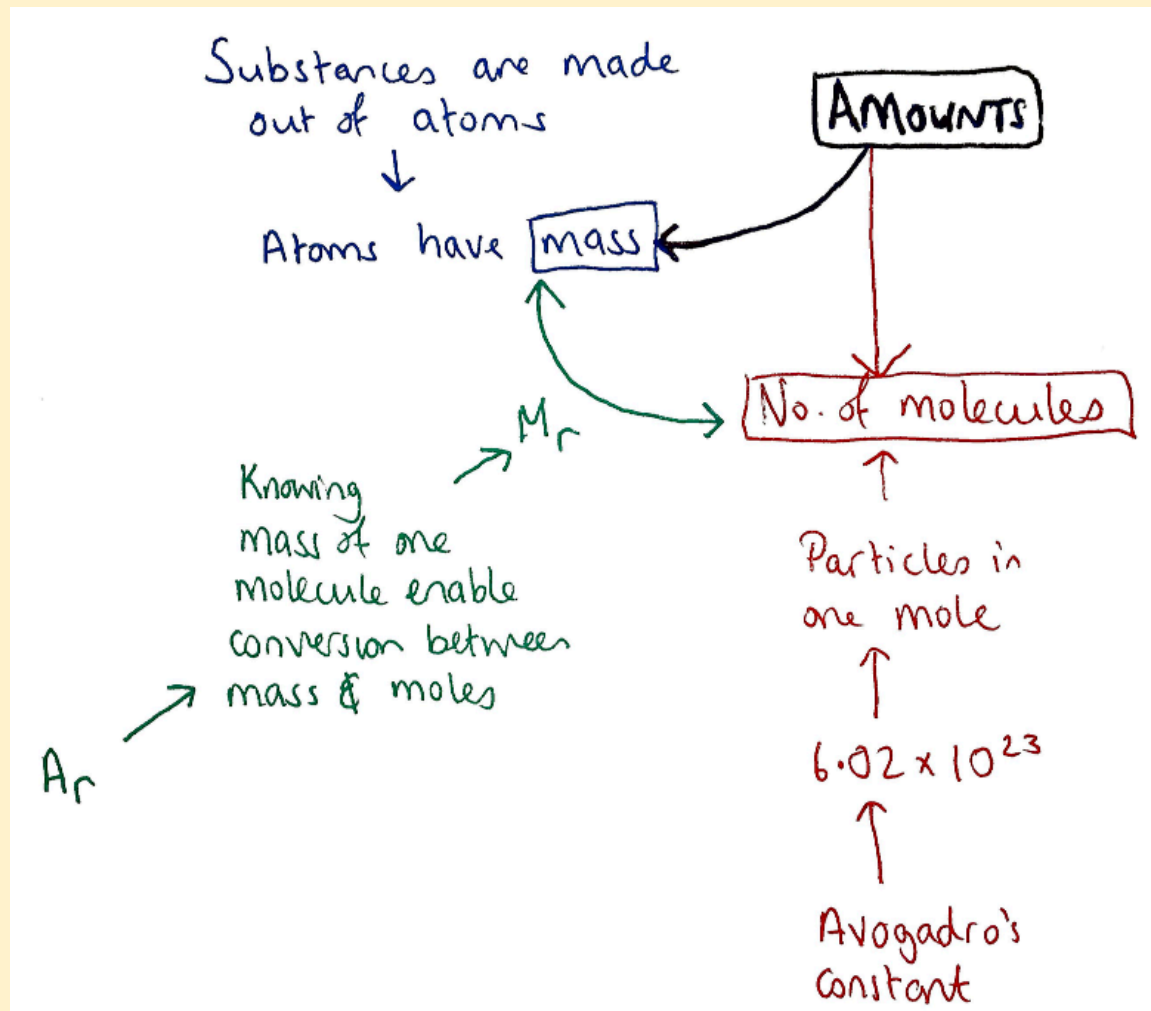 Substances are made
out of atoms
AMOUNTS
Atoms have mass
No. of molecules
Mr
Knowing
mass of one
molecule enable
conversion between
mass & moles
Ar
Particles in
one mole
6.02 x 10²³
Avogadro's
constant